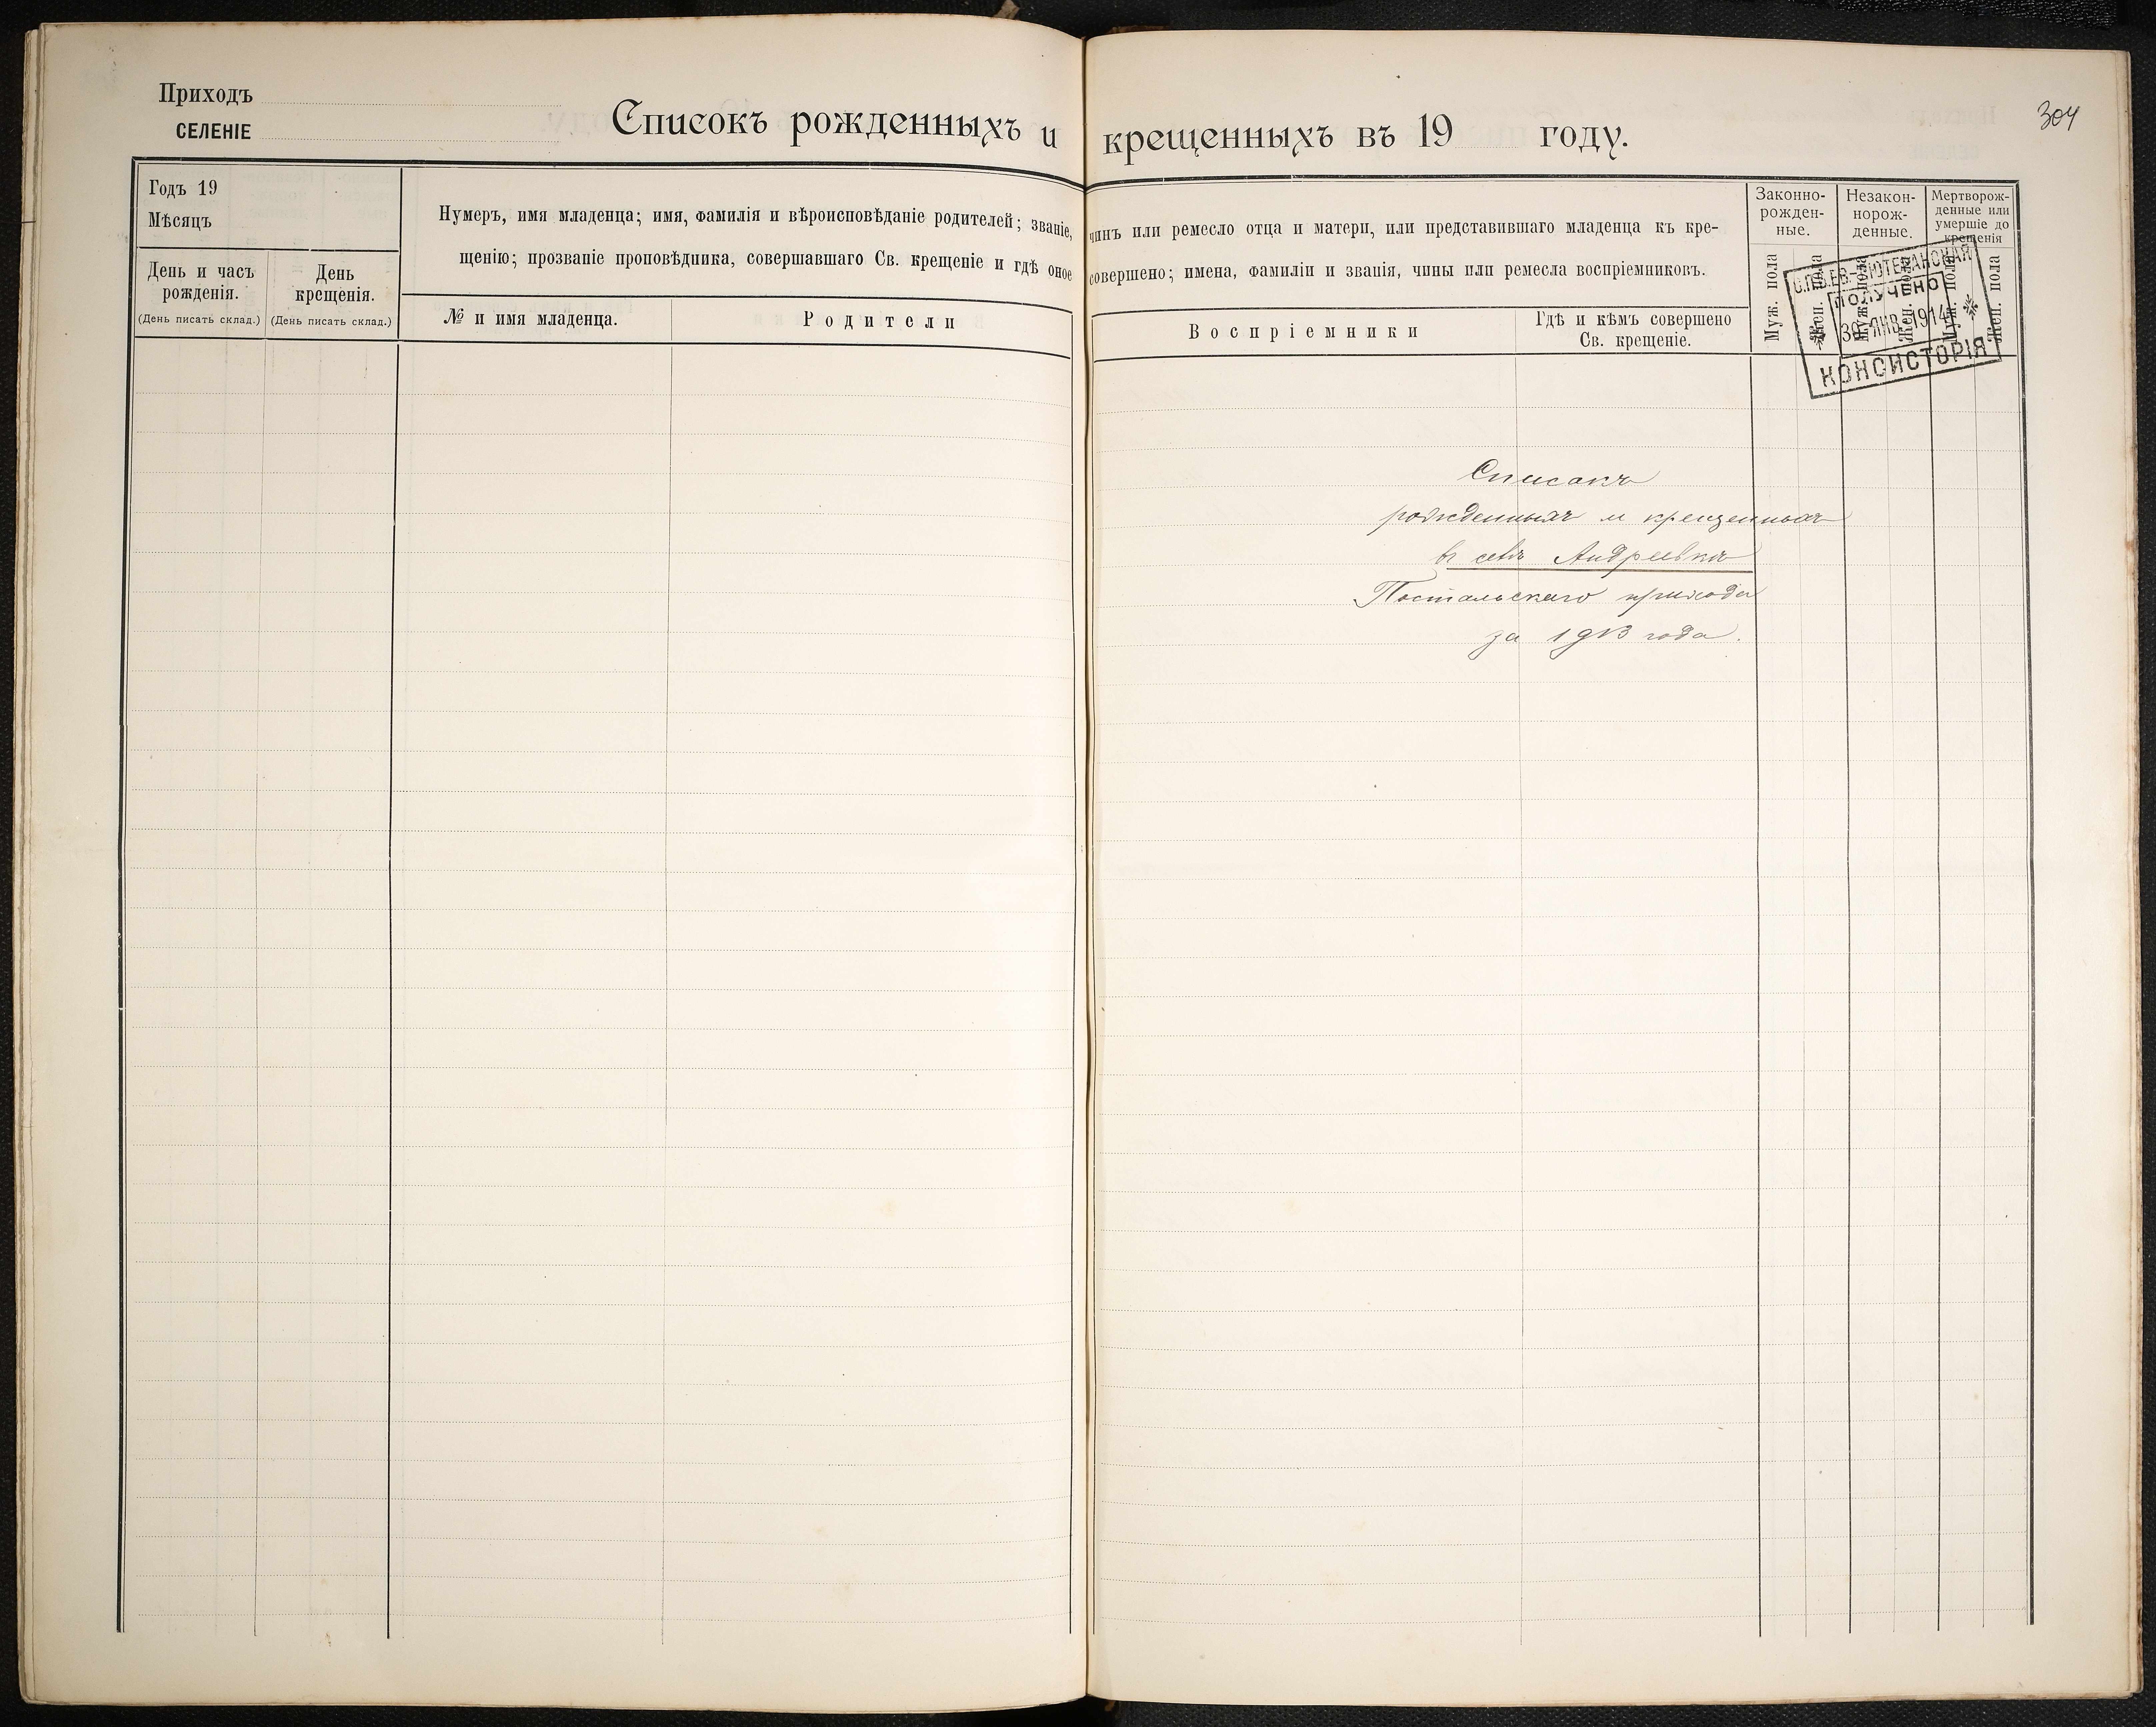 Приходъ
СЕЛЕНІЕ
Списокъ рожденныхъ и крещенныхъ въ 19 году.
304
Годъ 19
Мѣсяцъ
День и часъ рожденія.
(День писать склад.)
День крещенія.
(День писать склад.)
Нумеръ, имя младенца; имя, фамилія и вѣроисповѣданіе родителей; званіе, чинъ или ремесло отца и матери, или представившаго младенца къ кре-
щенію; прозваніе проповѣдника, совершавшаго Св. крещеніе и гдѣ оное совершено; имена, фамиліи и званія, чины или ремесла воспріемниковъ.
№ и имя младенца.
Родители
Воспріемники
Гдѣ и кѣмъ совершено
Св. крещеніе.
Законно-
рожден-
ные.
Незакон-
норож-
денные.
Мертворож-
денные или
умершіе до
крещенія
Муж. пола
Жен. пола
Муж. пола
Жен. пола
Муж. пола
Жен. пола
С.П.Б. ЕВ.-ЛЮТЕРАНСКАЯ
ПОЛУЧЕНО
30 ЯНВ. 1914
КОНСИСТОРІЯ
Списокъ
рожденныхъ и крещенныхъ
въ Андреевкѣ
Постальскаго прихода
за 1913 года.